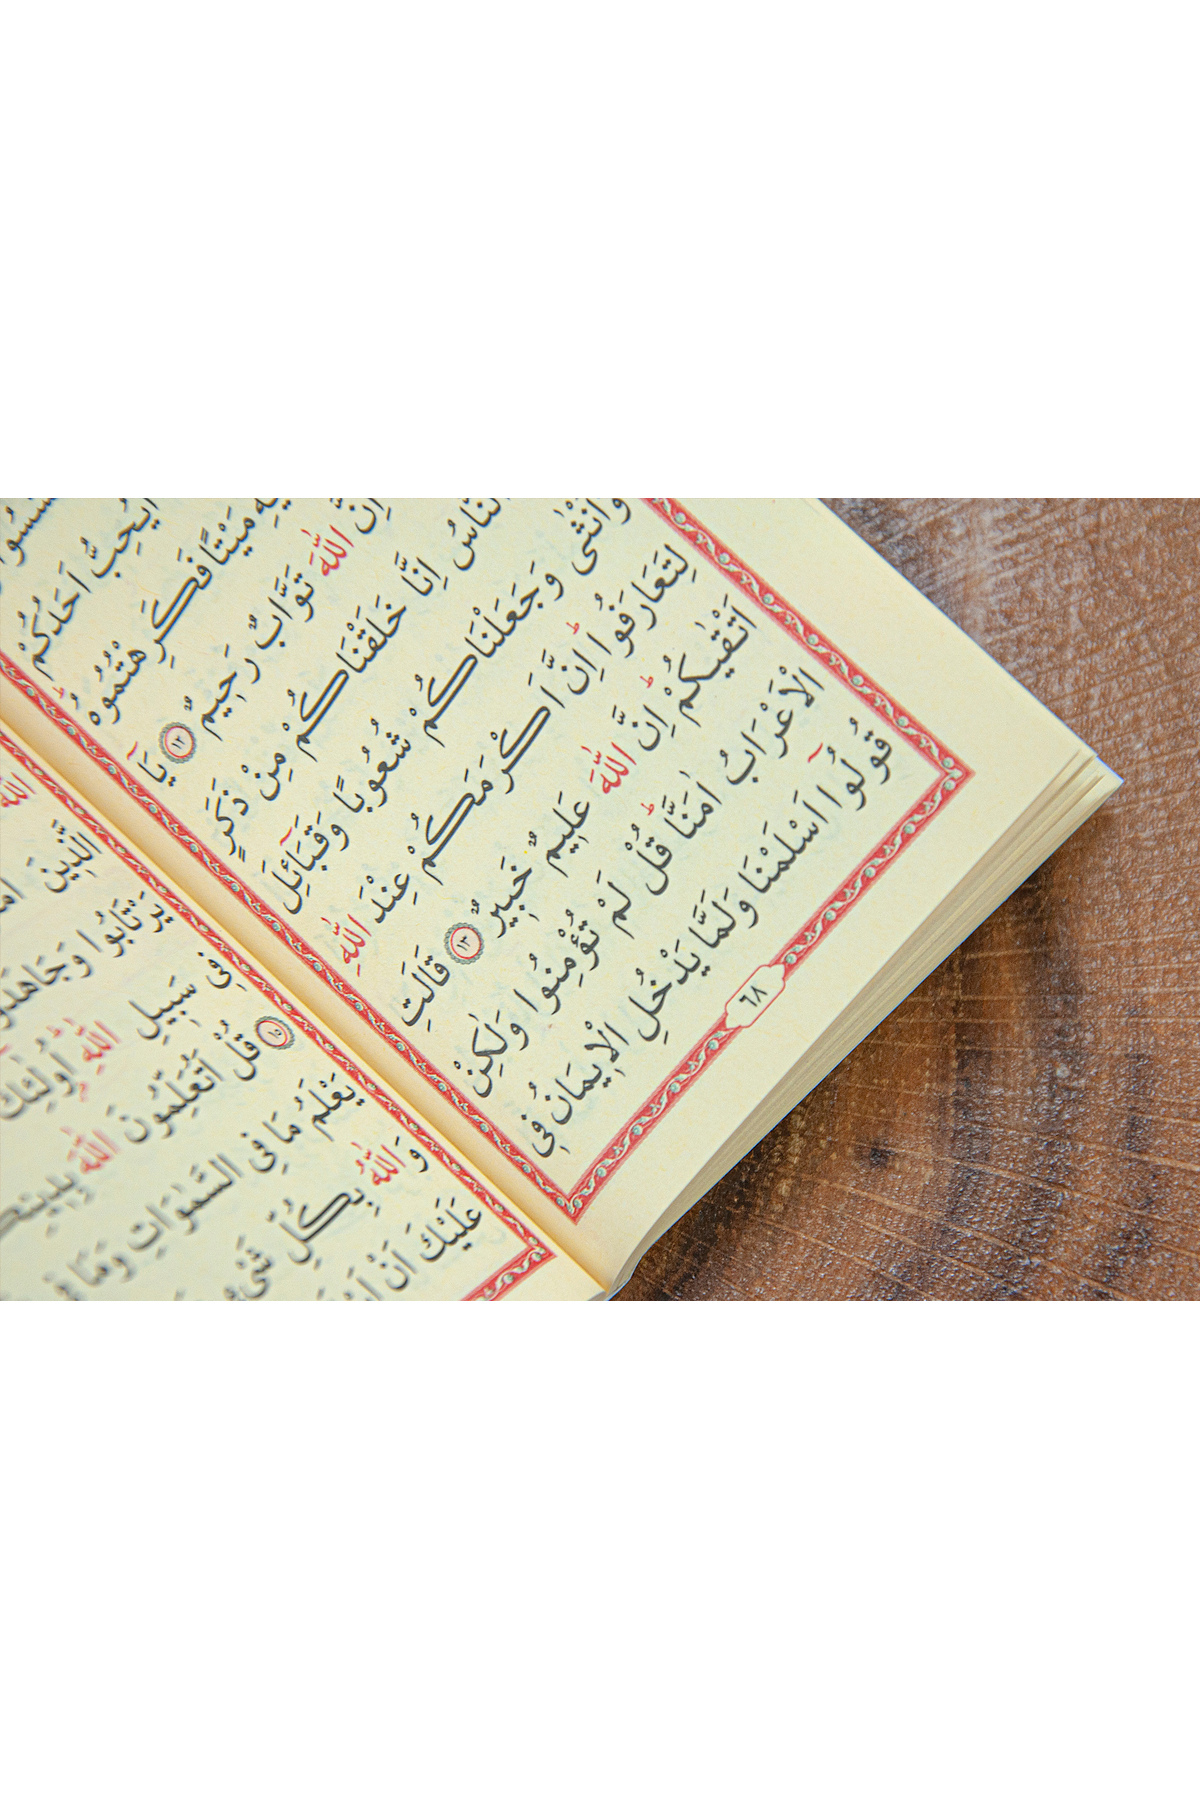 اَيُحِبُّ اَحَدُكُمْ
مَيْتًا فَكَرِهْتُمُوهُ
اِنَّ اللّٰهَ تَوَّابٌ رَحِيمٌ ﴿١٢﴾ يَٓا
النَّاسُ اِنَّا خَلَقْنَاكُمْ مِنْ ذَكَرٍ
وَاُنْثٰى وَجَعَلْنَاكُمْ شُعُوبًا وَقَبَٓائِلَ
لِتَعَارَفُواۜ اِنَّ اَكْرَمَكُمْ عِنْدَ اللّٰهِ
اَتْقٰيكُمْۜ اِنَّ اللّٰهَ عَلِيمٌ خَبِيرٌ ﴿١٣﴾ قَالَتِ
الْاَعْرَابُ اٰمَنَّاۜ قُلْ لَمْ تُؤْمِنُوا وَلٰكِنْ
قُولُٓوا اَسْلَمْنَا وَلَمَّا يَدْخُلِ الْاِيمَانُ فِي
٦٨
اللّٰهِ
الَّذِينَ
يَرْتَابُوا وَجَاهَدُوا
فِي سَبِيلِ اللّٰهِۜ اُو۬لٰٓئِكَ
﴿١٥﴾ قُلْ اَتُعَلِّمُونَ اللّٰهَ
يَعْلَمُ مَا فِي السَّمٰوَاتِ وَمَا فِي
وَاللّٰهُ بِكُلِّ شَيْءٍ
عَلَيْكَ اَنْ